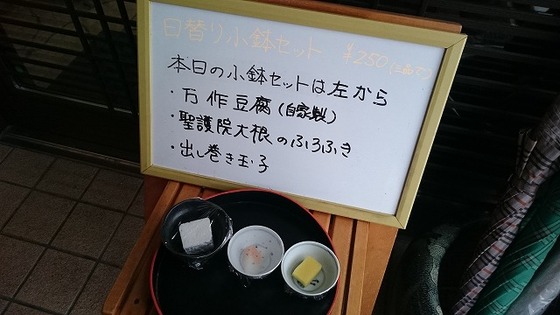 日替り小鉢セット ¥250(三品で)
本日の小鉢セットは左から
・万作豆腐(自家製)
・聖護院大根のふろふき
・出し巻き玉子